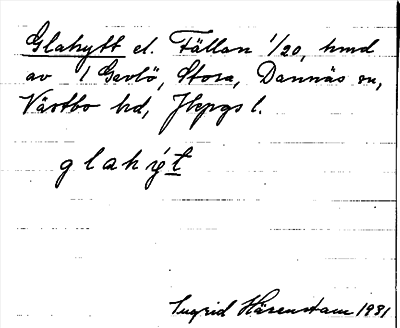 Glahytt el. Fällan 1/20, hmd
av 1 Gavlö, Stora, Dannäs sn,
Västbo hd, Jkpgs l.
glahyt
Ingrid Härenstam 1931